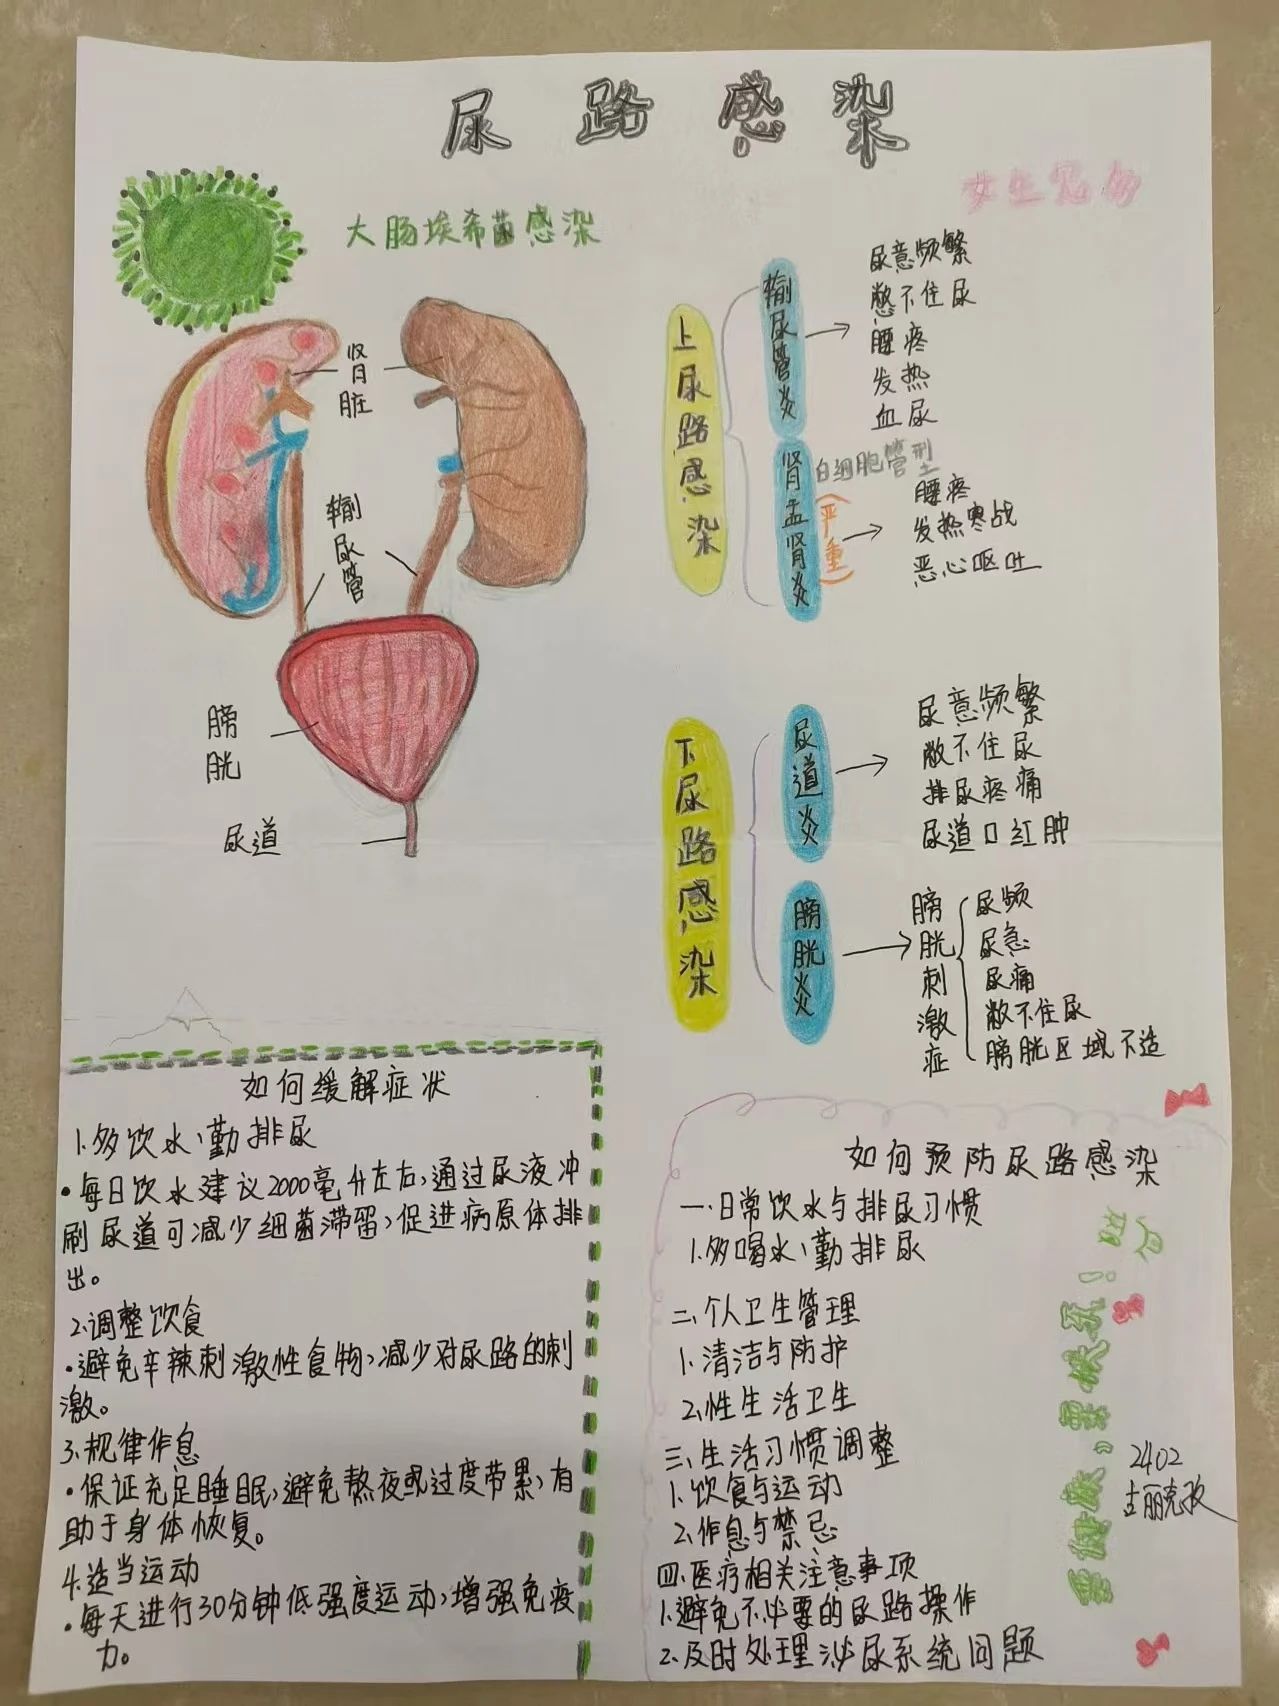 尿路感染
女生易多
大肠埃希菌感染
肾脏
输尿管
膀胱
尿道
上尿路感染
输尿管炎
尿意频繁
憋不住尿
腰疼
发热
血尿
肾盂肾炎
(严重)
白细胞管型
腰疼
发热寒战
恶心呕吐
下尿路感染
尿道炎
尿意频繁
憋不住尿
排尿疼痛
尿道口红肿
膀胱炎
膀胱刺激症
尿频
尿急
尿痛
憋不住尿
膀胱区域不适
如何缓解症状
1.多饮水、勤排尿
•每日饮水建议2000毫升左右,通过尿液冲
刷尿道可减少细菌滞留,促进病原体排
出。
2.调整饮食
•避免辛辣刺激性食物,减少对尿路的刺
激。
3.规律作息
•保证充足睡眠,避免熬夜或过度劳累,有
助于身体恢复。
4.适当运动
•每天进行30分钟低强度运动,增强免疫
力。
如何预防尿路感染
一.日常饮水与排尿习惯
1.多喝水、勤排尿
二.个人卫生管理
1.清洁与防护
2.性生活卫生
三.生活习惯调整
1.饮食与运动
2.作息与禁忌
四.医疗相关注意事项
1.避免不必要的尿路操作
2.及时处理泌尿系统问题
2402